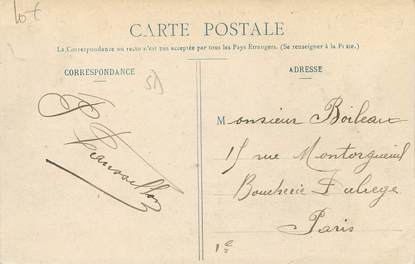 Lot
CARTE POSTALE
La Correspondance au recto n'est pas acceptée par tous les Pays Etrangers. (Se renseigner à la Poste.)
CORRESPONDANCE
ADRESSE
Monsieur Boileau
15 rue Montorgueil
Boucherie
Paris